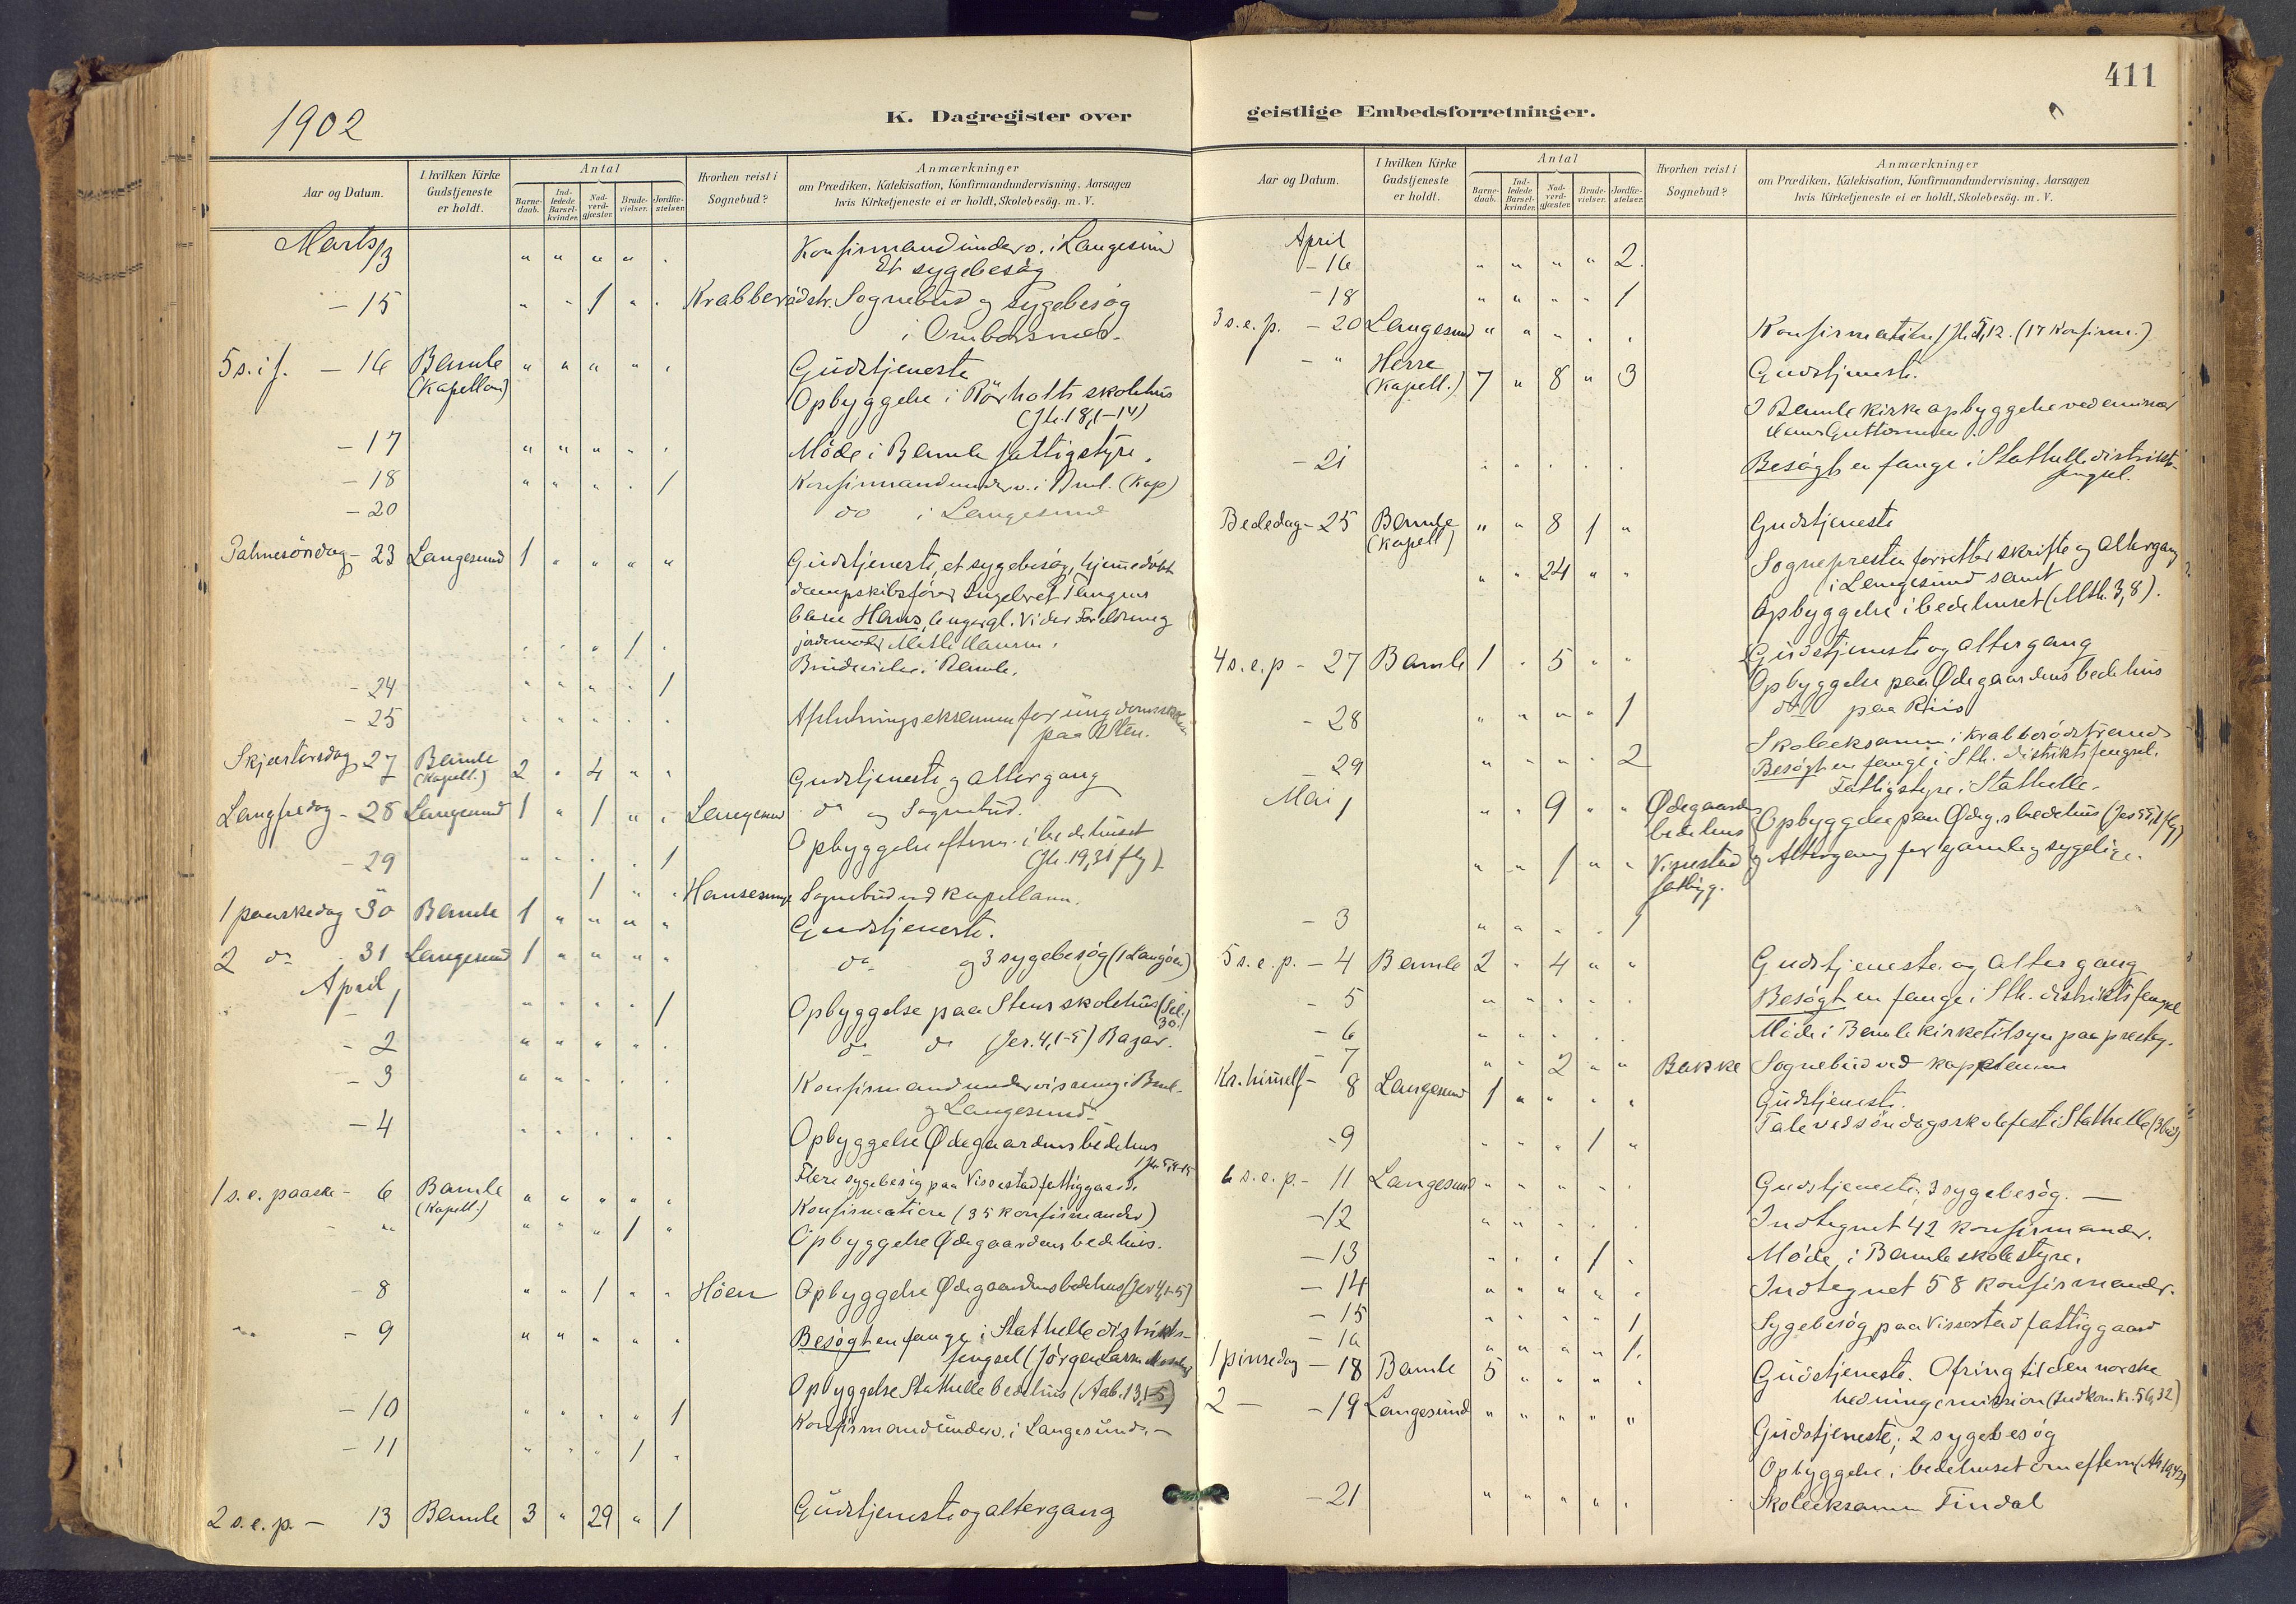 411
1902
K. Dagregister over geistlige Embedsforretninger.
Aar og Datum. I hvilken Kirke Gudstjeneste er holdt. Antal Barnedaab. Indledede Barselkvinder. Nadverdgjæster. Brudevielser. Jordfæstelser. Hvorhen reist i Sognebud? Anmærkninger om Prædiken, Katekisation, Konfirmandundervisning, Aarsagen hvis Kirketjeneste ei er holdt, Skolebesög. m. V.
Marts 13 " " " " . Konfirmandunderv. i Langesund
Et sygebesøg
- 15 " " 1 " . Krabberödstr. Sognebud og sygebesøg
i Omborsnes.
5 s. i f. - 16 Bamle " " " " " Gudstjeneste
(Kapellan) Opbyggelse i Rörholts skolehus
(Jh. 18,1-14)
- 17 " " " " . Möde i Bamle fattigstyre.
- 18 " " " . 1 Konfirmandunderv. i Bml. (Kap)
- 20 do i Langesund
Palmesöndag - 23 Langesund 1 " " " " Gudstjeneste, et sygebesøg, hjemmedöbt
dampskibsförer Ingebret
barn Hans,
jordemoder
. . " 1 . Brudevielse i Bamle.
- 24 " " " . 1
- 25 " " " . . Afslutningseksamen for ungdomsskolen
paa
Skjærtorsdag 27 Bamle 2 . 4 " " Gudstjeneste og altergang
(Kapell.)
Langfredag - 28 Langesund 1 " 1 " . Langesund do og Sognebud.
Opbyggelse efterm. i bedehuset
(Jh. 19,31 flg)
- 29 " " . . 1
1 " . Sognebud ved kapellanen.
1 paaskedag 30 Bamle 1 " " " " Gudstjeneste.
2 do 31 Langesund 1 " " " " do og 3 sygebesøg (1 Langöen)
April
- 1 " " " . 1 Opbyggelse paa Stens skolehus (
30.)
- 2 " " " " . do do (Jer. 4,1-5) Bazar.
- 3 " " . . . Konfirmandundervisning i Bml.
og Langesund
- 4 " . . . . Opbyggelse Ødegaardens bedehus
Flere sygebesøg paa Vissestad fattiggaard.
1 s. e. paaske - 6 Bamle " " " " . Konfirmation (35 konfirmander)
(Kapell.)
- " " " " 1 " Opbyggelse Ødegaardens bedehus.
- 8 " " 1 " " Höen Opbyggelse Ødegaardens bedehus (Jer 4,1-5)
- 9 " " " " . Besögt en fange i Stathelle distrikts-
fengsel (Jörgen Larsen
Opbyggelse Stathelle bedehus (Aab. 13,1-5)
- 10 " . . " 1 Konfirmandunderv. i Langesund. -
- 11 " " " 1 .
2 s. e. p. - 13 Bamle 3 " 29 " 1 Gudstjeneste og altergang
Aar og Datum. I hvilken Kirke Gudstjeneste er holdt. Antal Barnedaab. Indledede Barselkvinder. Nadverdgjæster. Brudevielser. Jordfæstelser. Hvorhen reist i Sognebud? Anmærkninger om Prædiken, Katekisation, Konfirmandundervisning, Aarsagen hvis Kirketjeneste ei er holdt, Skolebesög. m. V.
April
- 16 " " " " 2.
- 18 " " " " 1
3 s. e. p. - 20 Langesund " " " . . Konfirmation (17 Konfirm.)
- " Herre 7 " 8 " 3 Gudstjeneste.
(Kapell.)
I Bamle kirke opbyggelse ved emissær
Guttormsen.
- 21 . . . . . Besögt en fange i Stathelle distrikts-
fengsel.
Bededag - 25 Bamle " " 8 1 " Gudstjeneste
(Kapell)
" " 24 " " Sognepresten forretter skrifte og altergang
i Langesund samt
Opbyggelse i bedehuset (Mth. 3,8).
4 s. e. p - 27 Bamle 1 . 5 " " Gudstjeneste og altergang
Opbyggelse paa Ødegaardens bedehus
- 28 " " " " 1 do paa Riis
Skoleeksamen i Krabberödstrand
- 29 " " " . 2 Besögt en fange i Sth. distriktsfengsel.
Fattigstyre i Stathelle.
Mai 1 " . 9 " " Ødegaardens bedehus Opbyggelse paa Ødeg.s bedehus
" " 1 " " Vissestad fattigg. og Altergang for gamle og sygelige.
- 3 " " . . 1
5 s. e. p. - 4 Bamle 2 . 4 " " Gudstjeneste og altergang
- 5 " " " . . Besögt en fange i Sth. distriktsfengsel
- 6 . . . . . Möde i Bamle kirketilsyn paa presteg.
- 7 " . 2 " " Bakke Sognebud ved kapellanen
Kr. himmelf - 8 Langesund 1 " " . . Gudstjeneste.
Tale ved söndagsskolefest i Stathelle
- 9 " . . 1 "
6 s. e. p. - 11 Langesund " " " . . Gudstjeneste, 3 sygebesög. -
- 12 " " . . . Indtegnet 42 konfirmander.
- 13 " . . 1 . Möde i Bamle skolestyre.
- 14 " " " " . Indtegnet 58 konfirmander.
- 15 " . " . 1 Sygebesøg paa Vissestad fattiggaard
- 16 " " " " 1.
1 pinsedag - 18 Bamle 5 " " " . Gudstjeneste. Ofring til den norske
hedningemission (Indkom Kr. 56,32)
2 - - 19 Langesund " " " " " Gudstjeneste; 2 sygebesøg
Opbyggelse i bedehuset om efterm
- 21 " " " " . Skoleeksamen Findal